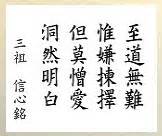 至道無難
惟嫌揀擇
但莫憎愛
洞然明白
三祖 信心銘